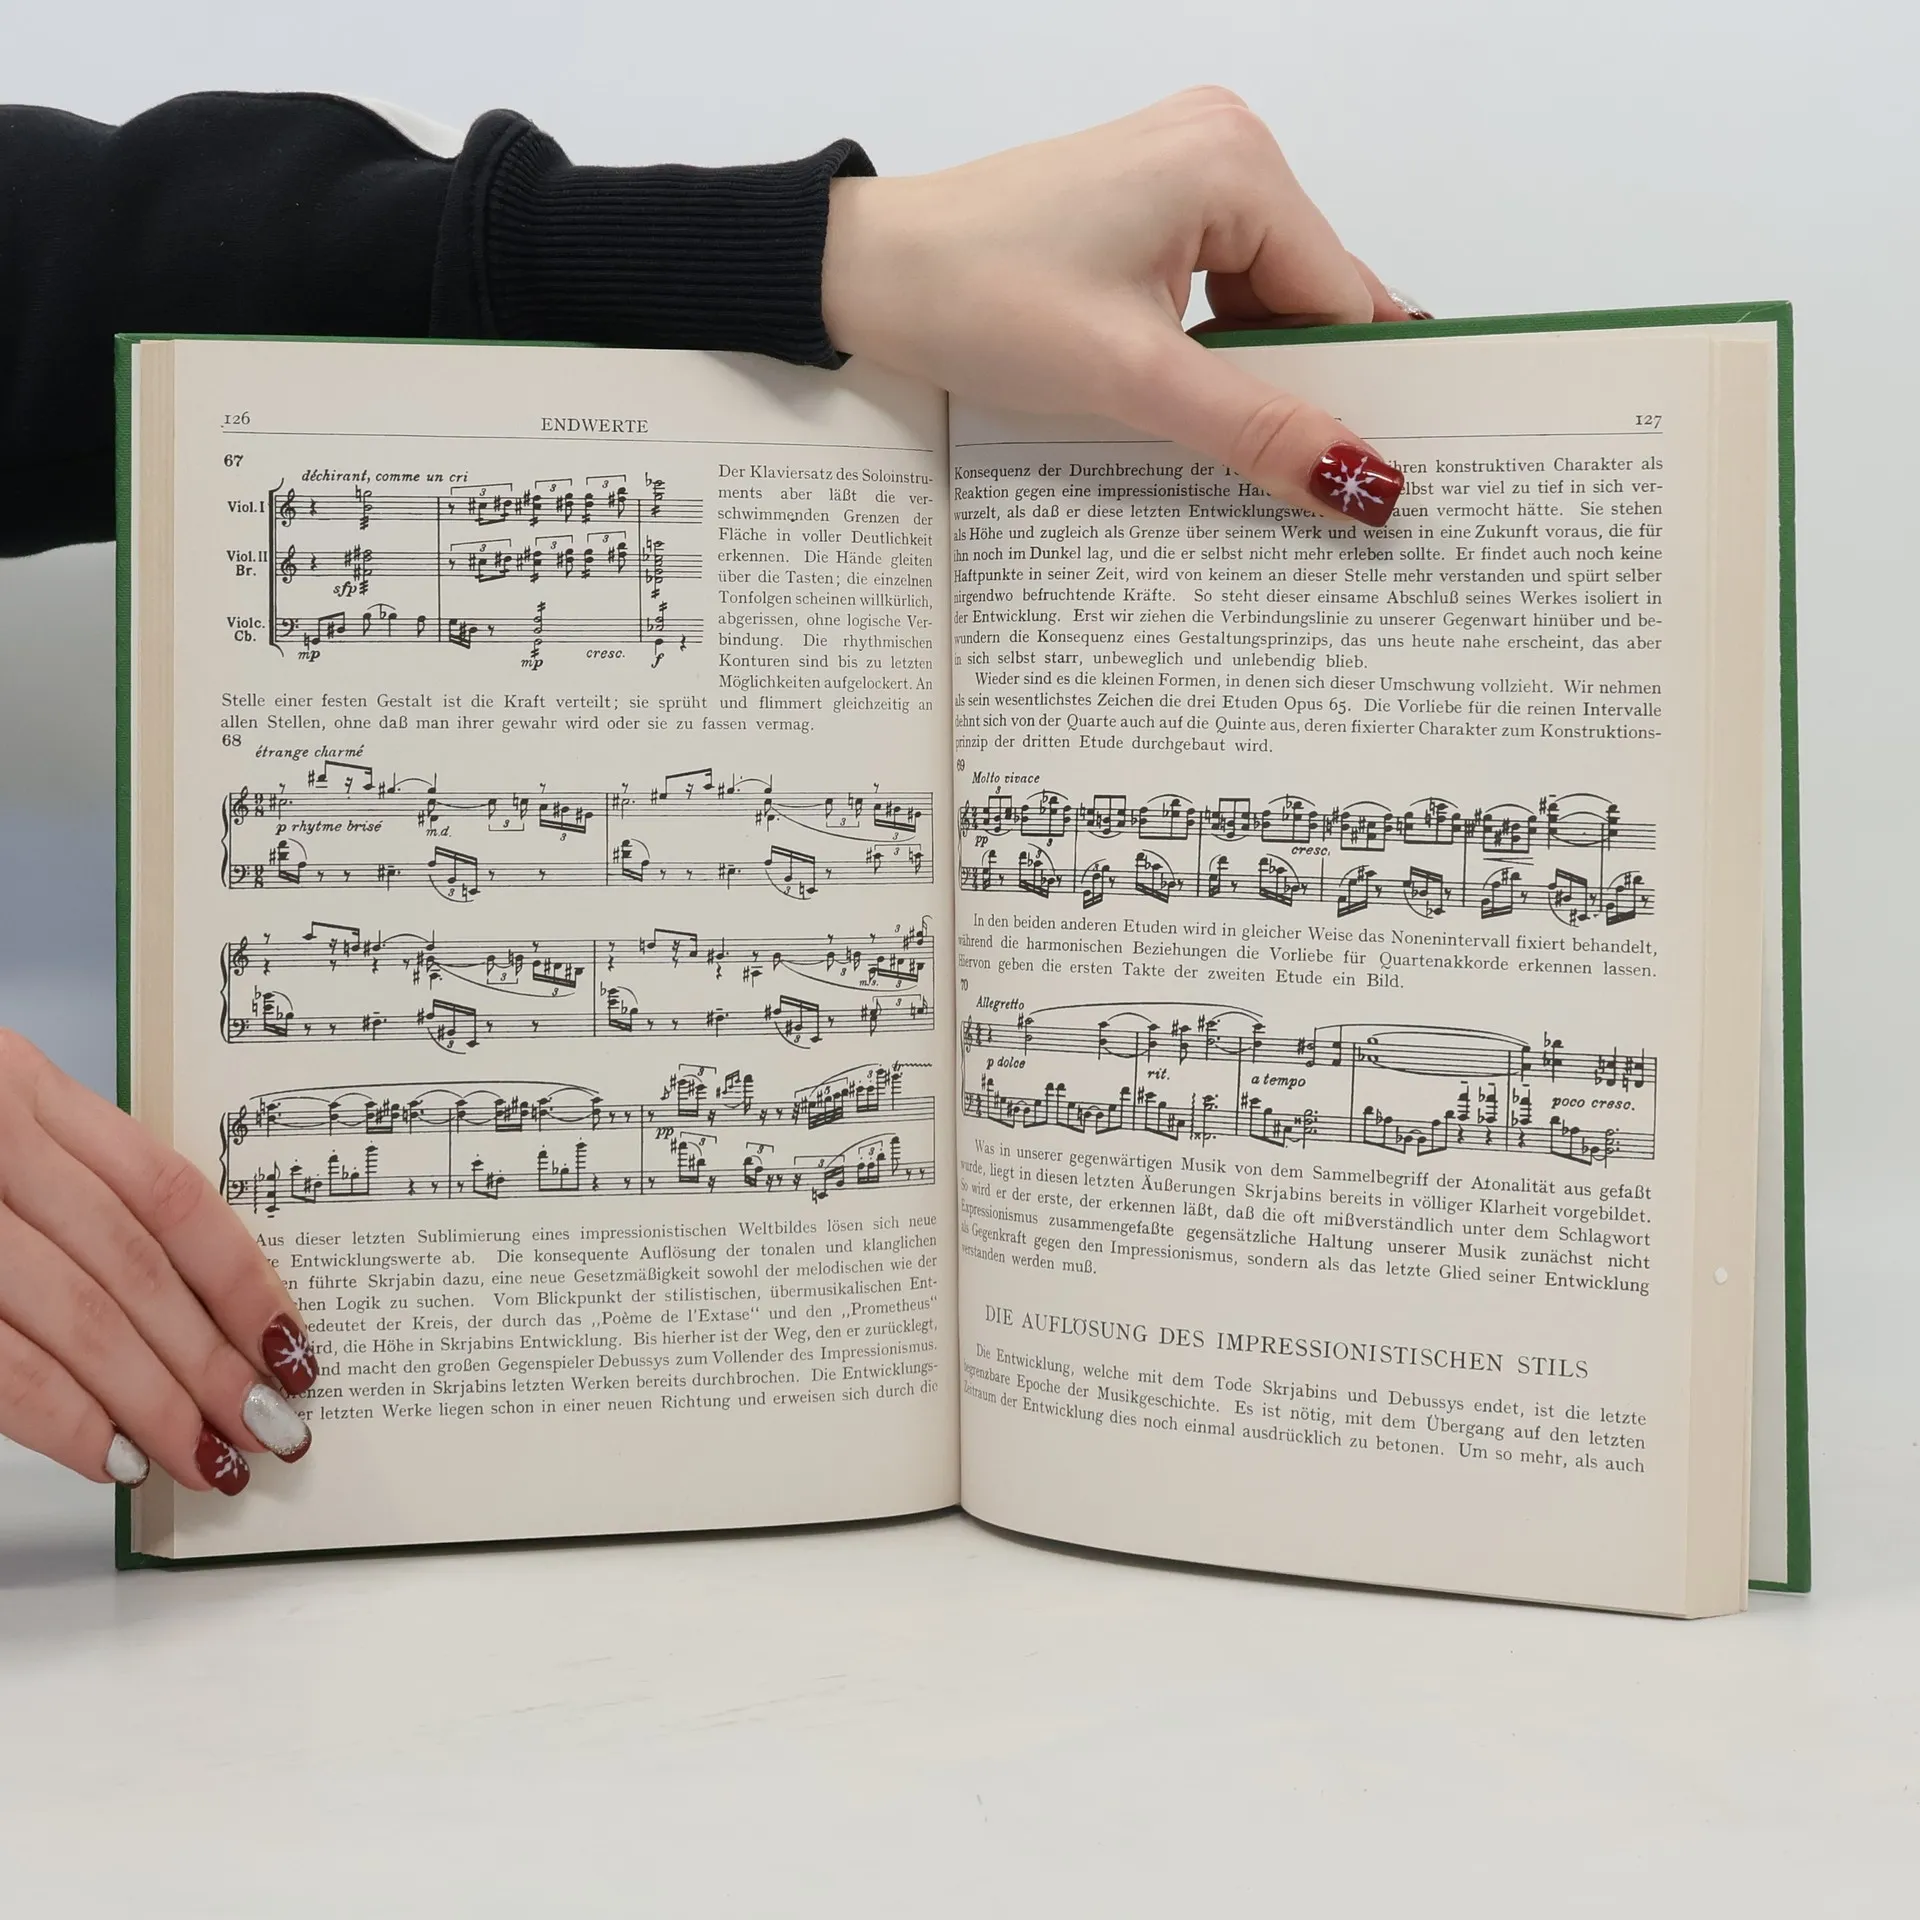 126
ENDWERTE
67
déchirant, comme un cri
3 3 3
Viol. I
Viol. II
Br.
3 3 3
sfp
Violc.
Cb.
mp
mp
cresc.
f
Der Klaviersatz des Soloinstru-
ments aber läßt die ver-
schwimmenden Grenzen der
Fläche in voller Deutlichkeit
erkennen. Die Hände gleiten
über die Tasten; die einzelnen
Tonfolgen scheinen willkürlich,
abgerissen, ohne logische Ver-
bindung. Die rhythmischen
Konturen sind bis zu letzten
Möglichkeiten aufgelockert. An
Stelle einer festen Gestalt ist die Kraft verteilt; sie sprüht und flimmert gleichzeitig an
allen Stellen, ohne daß man ihrer gewahr wird oder sie zu fassen vermag.
68
étrange charmé
p rhytme brisé
m.d.
m.s.
pp
Aus dieser letzten Sublimierung eines impressionistischen Weltbildes lösen sich neue
Entwicklungswerte ab. Die konsequente Auflösung der tonalen und klanglichen
führte Skrjabin dazu, eine neue Gesetzmäßigkeit sowohl der melodischen wie der
chen Logik zu suchen. Vom Blickpunkt der stilistischen, übermusikalischen Ent-
edeutet der Kreis, der durch das „Poème de l'Extase“ und den „Prometheus“
ird, die Höhe in Skrjabins Entwicklung. Bis hierher ist der Weg, den er zurücklegt,
und macht den großen Gegenspieler Debussys zum Vollender des Impressionismus.
enzen werden in Skrjabins letzten Werken bereits durchbrochen. Die Entwicklungs-
er letzten Werke liegen schon in einer neuen Richtung und erweisen sich durch die
127
Konsequenz der Durchbrechung der hren konstruktiven Charakter als
Reaktion gegen eine impressionistische elbst war viel zu tief in sich ver-
wurzelt, als daß er diese letzten Entwicklungswer auen vermocht hätte. Sie stehen
als Höhe und zugleich als Grenze über seinem Werk und weisen in eine Zukunft voraus, die für
ihn noch im Dunkel lag, und die er selbst nicht mehr erleben sollte. Er findet auch noch keine
Haftpunkte in seiner Zeit, wird von keinem an dieser Stelle mehr verstanden und spürt selber
nirgendwo befruchtende Kräfte. So steht dieser einsame Abschluß seines Werkes isoliert in
der Entwicklung. Erst wir ziehen die Verbindungslinie zu unserer Gegenwart hinüber und be-
wundern die Konsequenz eines Gestaltungsprinzips, das uns heute nahe erscheint, das aber
in sich selbst starr, unbeweglich und unlebendig blieb.
Wieder sind es die kleinen Formen, in denen sich dieser Umschwung vollzieht. Wir nehmen
als sein wesentlichstes Zeichen die drei Etuden Opus 65. Die Vorliebe für die reinen Intervalle
dehnt sich von der Quarte auch auf die Quinte aus, deren fixierter Charakter zum Konstruktions-
prinzip der dritten Etude durchgebaut wird.
69
Molto vivace
pp
cresc.
In den beiden anderen Etuden wird in gleicher Weise das Nonenintervall fixiert behandelt,
während die harmonischen Beziehungen die Vorliebe für Quartenakkorde erkennen lassen.
Hiervon geben die ersten Takte der zweiten Etude ein Bild.
70
Allegretto
p dolce
rit.
a tempo
poco cresc.
Was in unserer gegenwärtigen Musik von dem Sammelbegriff der Atonalität aus gefaßt
wurde, liegt in diesen letzten Äußerungen Skrjabins bereits in völliger Klarheit vorgebildet.
So wird er der erste, der erkennen läßt, daß die oft mißverständlich unter dem Schlagwort
Expressionismus zusammengefaßte gegensätzliche Haltung unserer Musik zunächst nicht
als Gegenkraft gegen den Impressionismus, sondern als das letzte Glied seiner Entwicklung
verstanden werden muß.
DIE AUFLÖSUNG DES IMPRESSIONISTISCHEN STILS
Die Entwicklung, welche mit dem Tode Skrjabins und Debussys endet, ist die letzte
begrenzbare Epoche der Musikgeschichte. Es ist nötig, mit dem Übergang auf den letzten
Zeitraum der Entwicklung dies noch einmal ausdrücklich zu betonen. Um so mehr, als auch